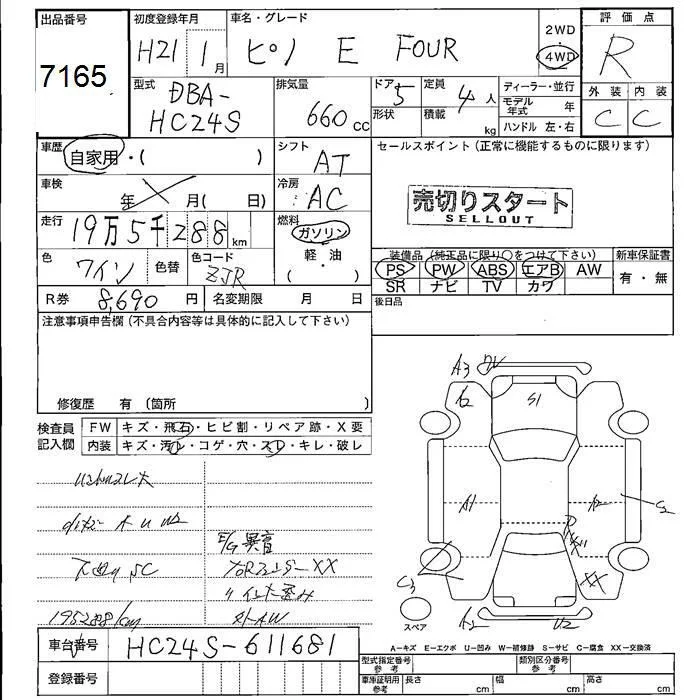 出品番号
7165
初度登録年月
H21 1月
車名・グレード
ピノ E FOUR
2WD
4WD
評価点
R
外装 内装
C C
型式
DBA-
HC24S
排気量
660 cc
ドア 5
形状
定員 4人
積載 kg
ディーラー・並行
モデル年式 年
ハンドル 左・右
車歴
自家用・( )
シフト
AT
セールスポイント(正常に機能するものに限ります)
売切りスタート
SELLOUT
車検
年 月( 日)
冷房
AC
走行
19万5千288 km
燃料
ガソリン
・
軽・油
( )
色
ワイン
色替
色コード
ZJR
装備品(純正品に限り○をつけて下さい)
PS PW ABS エアB AW
SR ナビ TV カワ
新車保証書
有・無
R券 8,690 円
名変期限 月 日
後日品
注意事項申告欄(不具合内容等は具体的に記入して下さい)
修復歴 有(箇所 )
検査員
記入欄
FW キズ・飛石・ヒビ割・リペア跡・X要
内装 キズ・汚レ・コゲ・穴・スレ・キレ・破レ
E/G異音
下回りSC
195288km
外AW
A3
A2
S1
A1
A2
C2
XX
C3
スペア
A2
U2
A=キズ E=エクボ U=凹み W=補修跡 S=サビ C=腐食 XX=交換済
車台番号
HC24S-611681
登録番号
型式指定番号
参考
類別区分番号
参考
車庫証明用
参考
長さ cm
幅 cm
高さ cm